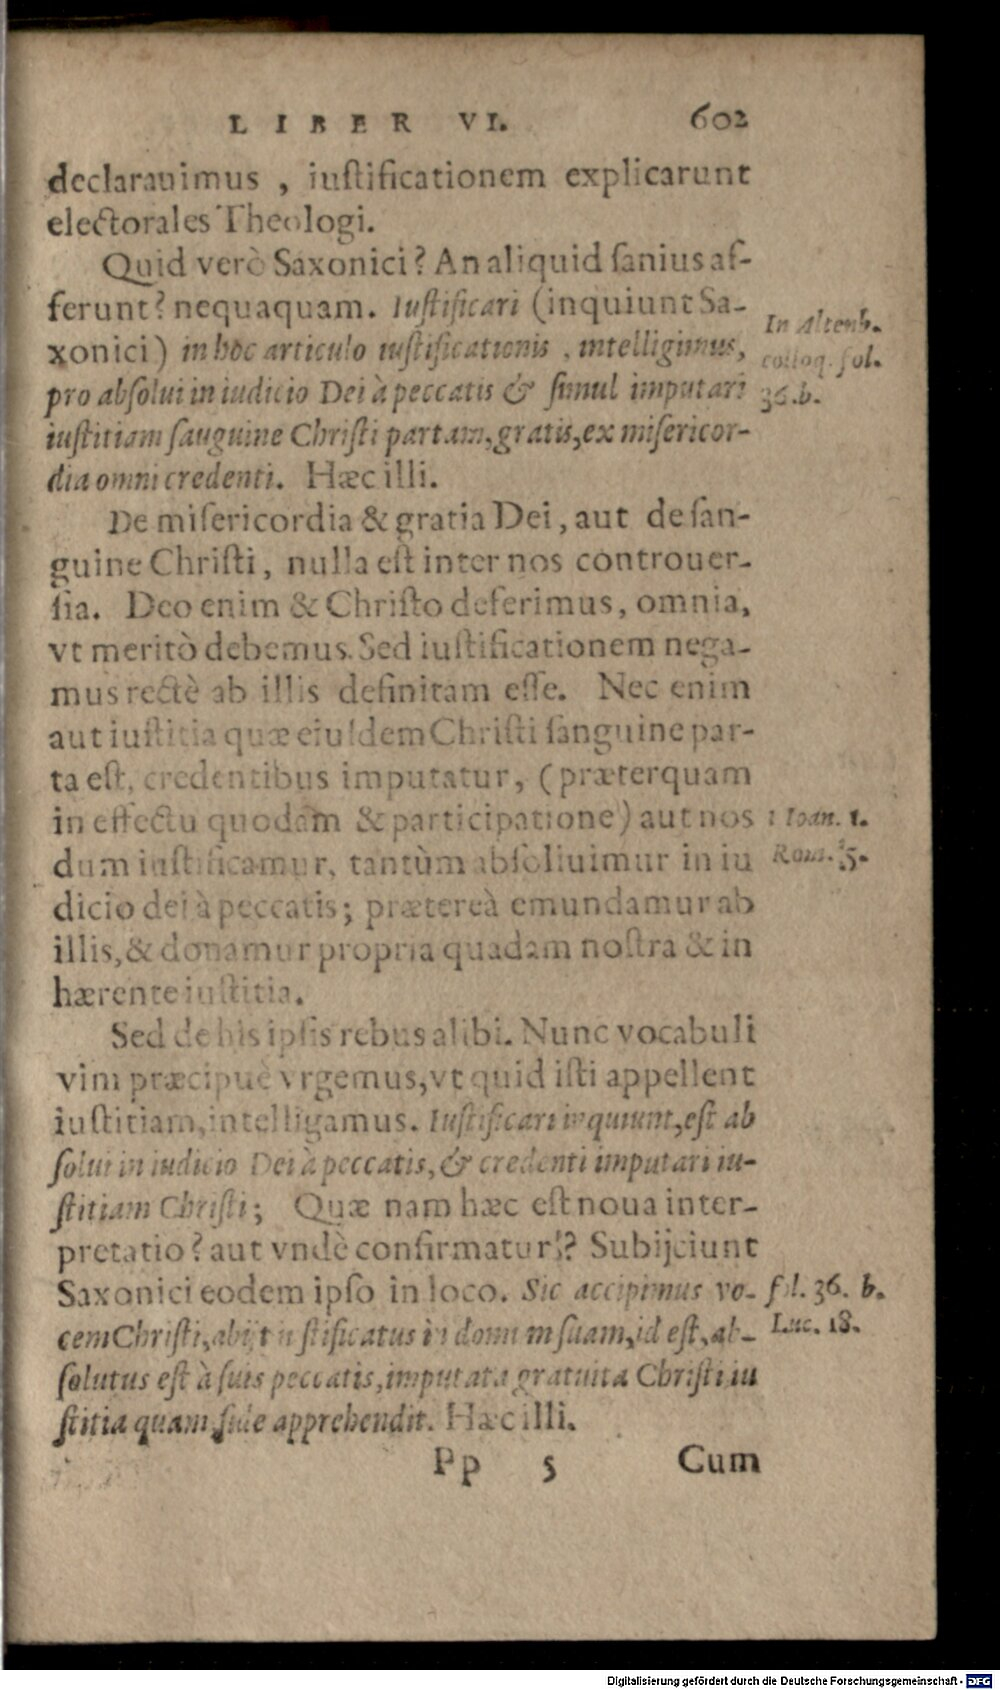 LIBER VI. 602
declarauimus , iustificationem explicarunt
electorales Theologi.
Quid verò Saxonici? An aliquid sanius af-
ferunt? nequaquam. Iustificari (inquiunt Sa-
xonici) in hoc articulo iustificationis , intelligimus,
pro absolui in iudicio Dei à peccatis & simul imputari
iustitiam sauguine Christi partam, gratis, ex misericor-
dia omni credenti. Hæc illi.
In Altenb.
colloq. fol.
36. b.
De misericordia & gratia Dei, aut de san-
guine Christi, nulla est inter nos controuer-
sia. Deo enim & Christo deferimus, omnia,
vt meritò debemus. Sed iustificationem nega-
mus rectè ab illis definitam esse. Nec enim
aut iustitia quæ eiusdem Christi sanguine par-
ta est, credentibus imputatur, (præterquam
in effectu quodam & participatione) aut nos
dum iustificamur, tantùm absoluimur in iu
dicio dei à peccatis; prætereà emundamur ab
illis, & donamur propria quadam nostra & in
hærente iustitia.
1 Ioan. 1.
Rom. 5.
Sed de his ipsis rebus alibi. Nunc vocabuli
vim præcipuè vrgemus, vt quid isti appellent
iustitiam, intelligamus. Iustificari inquiunt, est ab
solui in iudicio Dei à peccatis, & credenti imputari iu-
stitiam Christi; Quæ nam hæc est noua inter-
pretatio? aut vndè confirmatur? Subijciunt
Saxonici eodem ipso in loco. Sic accipimus vo-
cem Christi, abijt iustificatus in domum suam, id est, ab-
solutus est à suis peccatis, imputata gratuita Christi iu
stitia quam fide apprehendit. Hæc illi.
fol. 36. b.
Luc. 18.
Pp 5 Cum
Digitalisierung gefördert durch die Deutsche Forschungsgemeinschaft - DFG